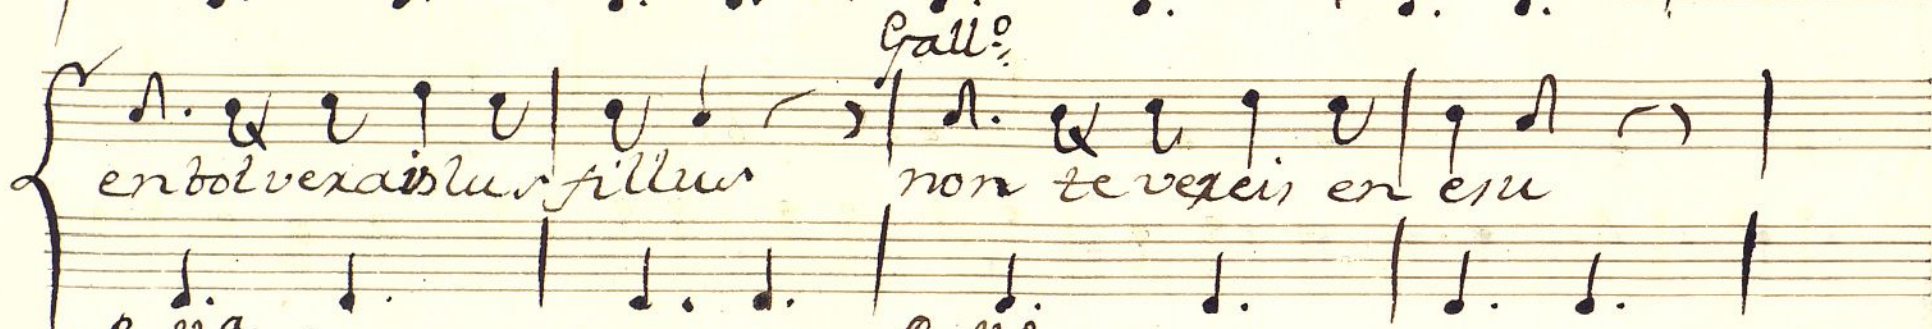 Gallº
enbolveraislus fillus non te vereis en esu